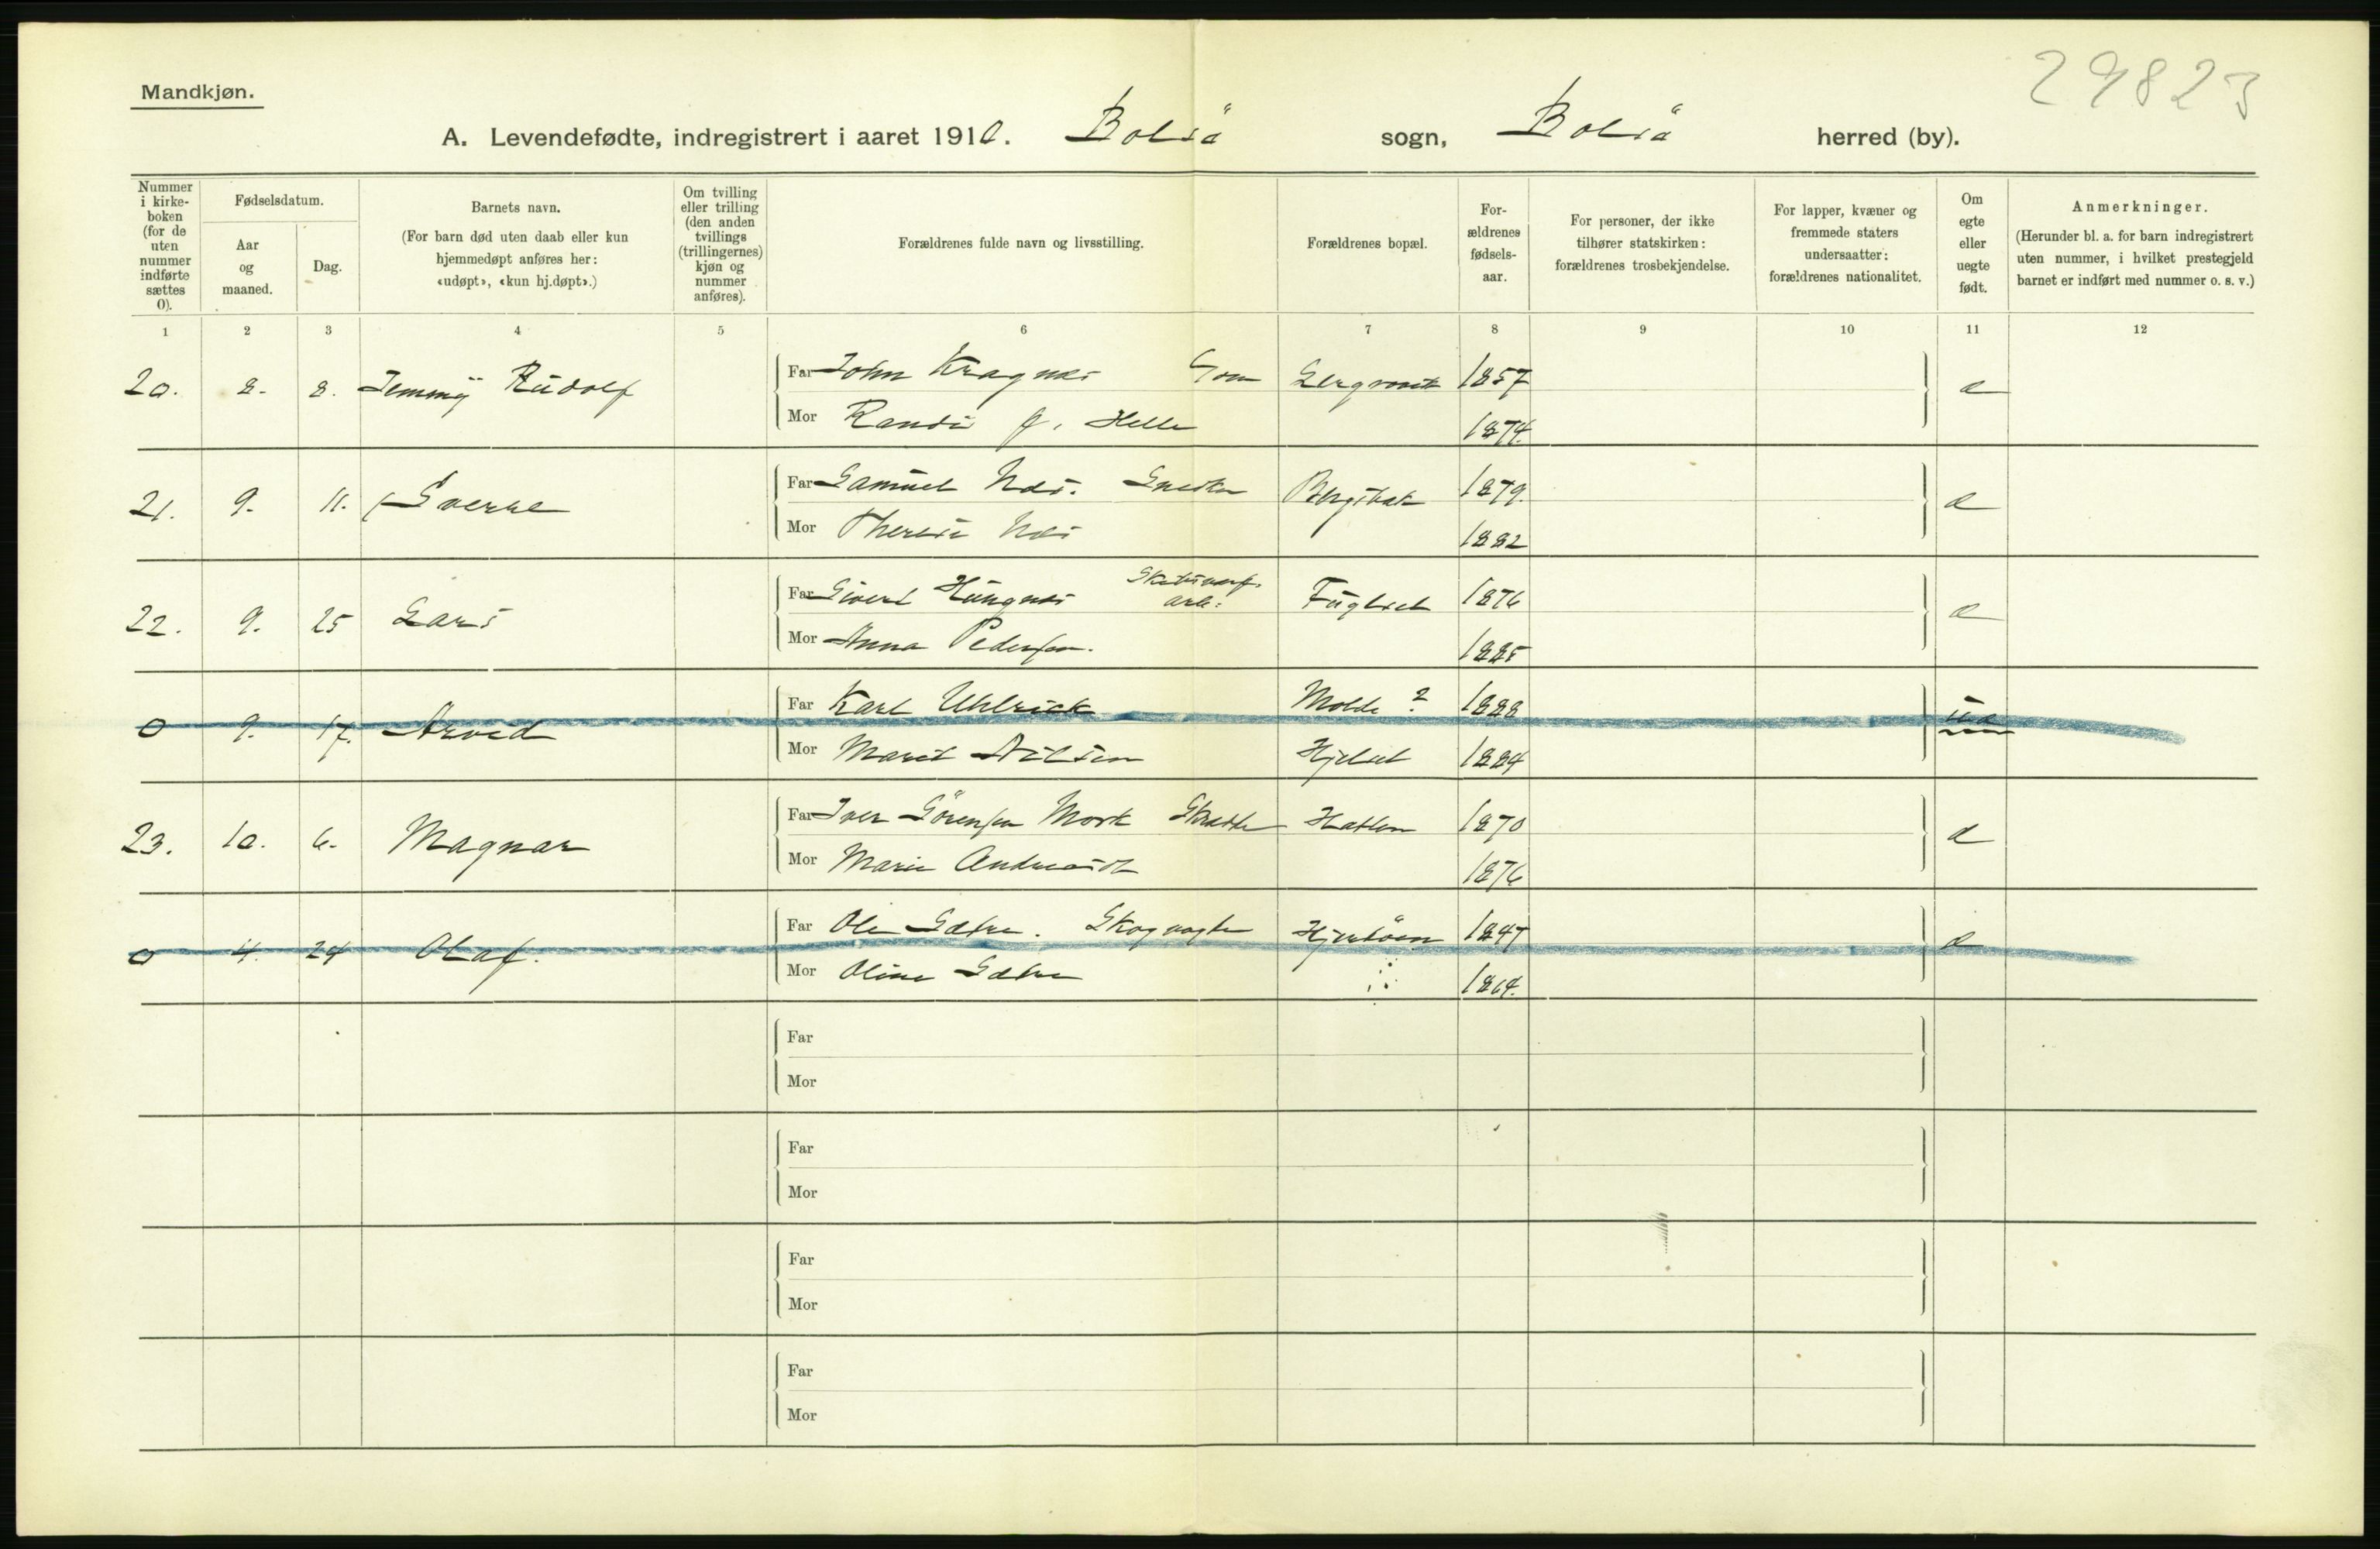 29823
Mandkjøn.
A. Levendefødte, indregistrert i aaret 1910. Bolsö sogn, Bolsö herred (by).
Nummer i kirke-boken (for de uten nummer indførte sættes 0).
Fødselsdatum.
Aar og maaned.
Dag.
Barnets navn.
(For barn død uten daab eller kun hjemmedøpt anføres her: «udøpt», «kun hj.døpt».)
Om tvilling eller trilling (den anden tvillings (trillingernes) kjøn og nummer anføres).
Forældrenes fulde navn og livsstilling.
Forældrenes bopæl.
For-ældrenes fødsels-aar.
For personer, der ikke tilhører statskirken: forældrenes trosbekjendelse.
For lapper, kvæner og fremmede staters undersaatter: forældrenes nationalitet.
Om egte eller uegte født.
Anmerkninger.
(Herunder bl. a. for barn indregistrert uten nummer, i hvilket prestegjeld barnet er indført med nummer o. s. v.)
1 2 3 4 5 6 7 8 9 10 11 12
20. 8. 8. Jemmy Rudolf Far John Kragnes 1857 e
Mor Randi f. Helle 1874.
21. 9. 11. Sverre Far Samuel Næs. Snedker 1879. e
Mor Therese Næs 1882
22. 9. 25 Lars Far Sivert Hungnes arb: Fuglset 1876 e
Mor Anna Pedersen. 1885
0 9. 17. Arvid Far Karl Uhlrick Molde ? 1888
Mor Marit Nilsen Hjelset 1884
23. 10. 6. Magnar Far Iver Sörensen Mork 1870 e
Mor Marie 1876
0 4. 24 Olaf. Far Ole Sætre. Skogvogter 1847 e
Mor Oline Sætre 1864.
Far
Mor
Far
Mor
Far
Mor
Far
Mor